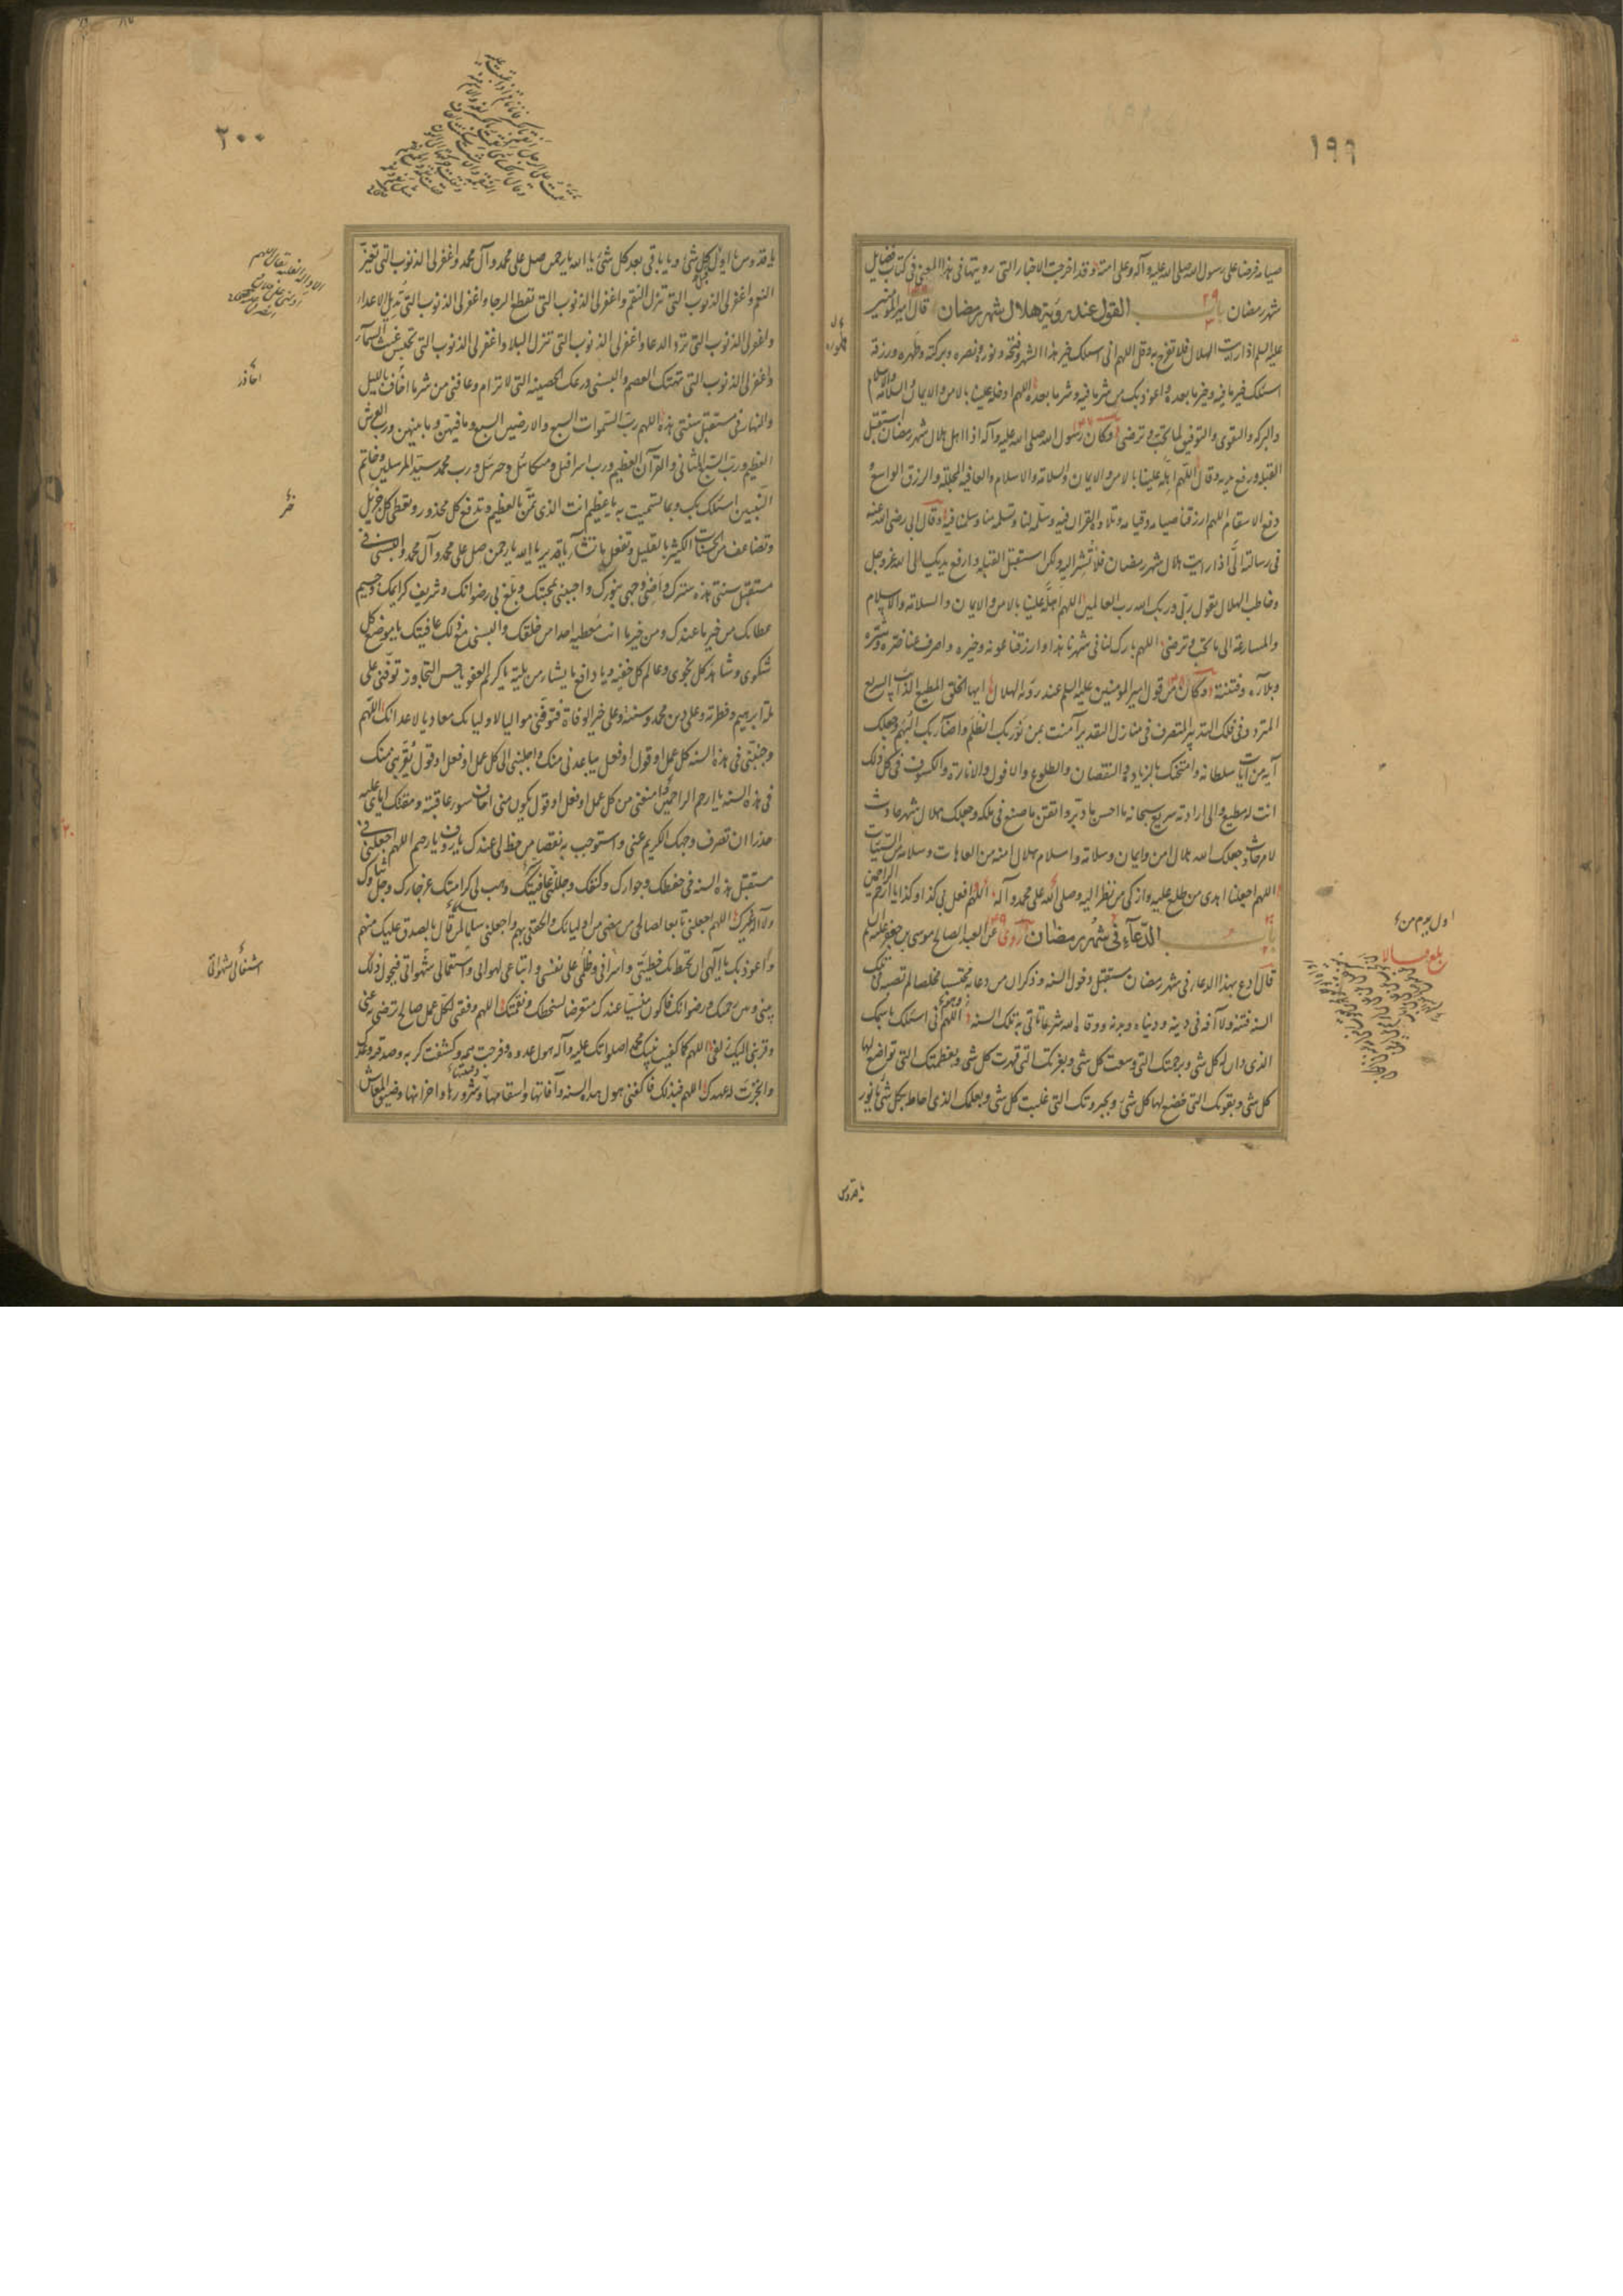 ١٩٩
صيامه فرضا على رسول الله صلى الله عليه وآله وعلى امته وقد اخرجت الاخبار التى رويتها فى هذا المعنى فى كتاب فضايل
شهر رمضان باب القول عند رؤية هلال شهر رمضان قال امير المؤمنين
عليه السلم اذا رايت الهلال فلا تبرح وقل اللهم انى اسئلك خير هذا الشهر وفتحه ونوره ونصره وبركته وطهره ورزقه
اسئلك خير ما فيه وخير ما بعده واعوذ بك من شر ما فيه وشر ما بعده اللهم ادخله علينا بالامن والايمان والسلامة والاسلام
والبركه والتقوى والتوفيق لما تحب وترضى وكان رسول الله صلى الله عليه وآله اذا اهل هلال شهر رمضان استقبل
القبله ورفع يديه وقال اللهم اهله علينا بالامن والايمان والسلامة والاسلام والعافيه المجلله والرزق الواسع
ودفع الاسقام اللهم ارزقنا صيامه وقيامه وتلاوة القران فيه وسلمه لنا وتسلمه منا وسلمنا فيه وقال ابى رضى الله عنه
فى رسالته الىّ اذا رايت هلال شهر رمضان فلا تشر اليه ولكن استقبل القبله وارفع يديك الى الله عز وجل
وخاطب الهلال تقول ربى وربك الله رب العالمين اللهم اهله علينا بالامن والايمان والسلامة والاسلام
والمسارعة الى ما تحب وترضى اللهم بارك لنا فى شهرنا هذا وارزقنا عونه وخيره واصرف عنا ضره وشره
وبلاءه وفتنته وكان من قول امير المؤمنين عليه السلم عند رؤية الهلال ايها الخلق المطيع الدائب السريع
المتردد فى فلك التدبير المتصرف فى منازل التقدير آمنت بمن نور بك الظلم واضاء بك البهم وجعلك
آية من آيات سلطانه وامتحنك بالزيادة والنقصان والطلوع والافول والانارة والكسوف فى كل ذلك
انت له مطيع والى ارادته سريع سبحانه ما احسن ما دبر واتقن ما صنع فى ملكه وجعلك هلال شهر حادث
لامر حادث جعلك الله هلال امن وايمان وسلامة واسلام هلال امنة من العاهات وسلامة من السيئات
اللهم اجعلنا اهدى من طلع عليه وازكى من نظر اليه وصلى الله على محمد وآله اللهم افعل بى كذا وكذا يا ارحم الراحمين
باب الدعآء فى شهر رمضان روى عن العبد الصالح موسى بن جعفر عليه السلم
قال ادع بهذا الدعاء فى شهر رمضان مستقبل دخول السنه وذكر ان من دعا به محتسبا مخلصا لم تصبه فى تلك
السنه فتنة ولا آفه فى دينه ودنياه وبدنه ووقاه الله شر ما ياتى به تلك السنه اللهم انى اسئلك باسمك
الذى دان له كل شى وبرحمتك التى وسعت كل شى وبعزتك التى قهرت كل شى وبعظمتك التى تواضع لها
كل شى وبقوتك التى خضع لها كل شى وبجبروتك التى غلبت كل شى وبعلمك الذى احاط بكل شى يا نور
اول يوم من
يا قدوس
٢٠٠
يا قدوس يا اول قبل كل شى ويا باقى بعد كل شئ يا الله يا رحمن صل على محمد وآل محمد واغفر لى الذنوب التى تغير
النعم واغفر لى الذنوب التى تنزل النقم واغفر لى الذنوب التى تقطع الرجاء واغفر لى الذنوب التى تديل الاعداء
واغفر لى الذنوب التى ترد الدعا واغفر لى الذنوب التى تنزل البلاء واغفر لى الذنوب التى تحبس غيث السمآء
واغفر لى الذنوب التى تهتك العصم والبسنى درعك الحصينه التى لا ترام وعافنى من شر ما اخاف بالليل
والنهار فى مستقبل سنتى هذه اللهم رب السموات السبع والارضين السبع وما فيهن وما بينهن ورب العرش
العظيم ورب السبع المثانى والقرآن العظيم ورب اسرافيل وميكائيل وجبرئيل ورب محمد سيد المرسلين وخاتم
النبيين اسئلك بك وبما تسميت به يا عظيم انت الذى تمن بالعظيم وتدفع كل محذور وتعطى كل جزيل
وتضاعف من الحسنات الكثير بالقليل وتفعل ما تشآء يا قدير يا الله يا رحمن صل على محمد وآل محمد والبسنى فى
مستقبل سنتى هذه سترك واضئ وجهى بنورك واحينى بمحبتك وبلغ بى رضوانك وشريف كرايمك وجسيم
عطائك من خير ما عندك ومن خير ما انت معطيه احدا من خلقك والبسنى مع ذلك عافيتك يا موضع كل
شكوى وشاهد كل نجوى وعالم كل خفية ويا دافع ما يشاء من بلية يا كريم العفو يا حسن التجاوز توفنى على
ملة ابراهيم وفطرته وعلى دين محمد وسنته وعلى خير الوفاة فتوفنى مواليا لاوليائك معاديا لاعدائك اللهم
وجنبنى فى هذه السنه كل عمل او قول او فعل يباعدنى منك واجلبنى الى كل عمل او فعل او قول يقربنى منك
فى هذه السنه يا ارحم الراحمين وامنعنى من كل عمل او فعل او قول يكون منى اخاف سوء عاقبته ومقتك اياى عليه
حذرا ان تصرف وجهك الكريم عنى واستوجب به نقصا من حظ لى عندك يا رؤف يا رحيم اللهم اجعلنى فى
مستقبل هذه السنه فى حفظك وجوارك وكنفك وجللنى عافيتك وهب لى كرامتك عز جارك وجل ثناؤك
ولا اله غيرك اللهم اجعلنى تابعا لصالحى من مضى من اوليائك والحقنى بهم واجعلنى مسلما لمن قال بالصدق عليك منهم
واعوذ بك يا الهى ان تحيط بى خطيئتى واسرافى وظلمى على نفسى واتباعى لهوائى واستعمالى شهواتى فيحول ذلك
بينى وبين رحمتك ورضوانك فاكون منسيا عندك متعرضا لسخطك ونقمتك اللهم وفقنى لكل عمل صالح ترضى به عنى
وقربنى اليك زلفى اللهم كما كفيت نبيك محمدا صلواتك عليه وآله هول عدوه وفرجت همه وكشفت كربه وصدقته وعدك
وانجزت له عهدك اللهم فبذلك فاكفنى هول هذه السنه وآفاتها واسقامها وفتنتها وشرورها واحزانها وضيق المعاش
احاذر
اشتغالى بشهواتى